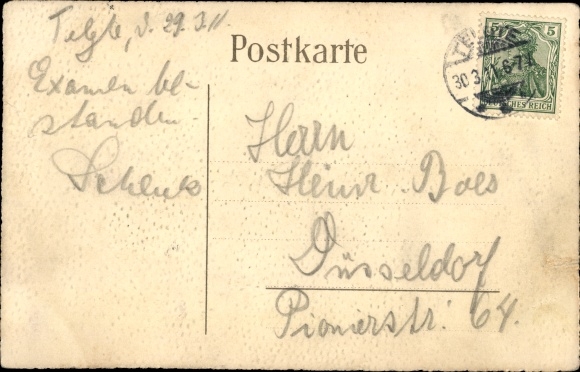 Telgte, d. 29.3.11.
Examen be-
standen.
Schenks
Postkarte
Herrn
Heinr. Boes
Düsseldorf
Pionierstr. 64.
TELGTE
30.3.11.6-7
5 5
DEUTSCHES REICH